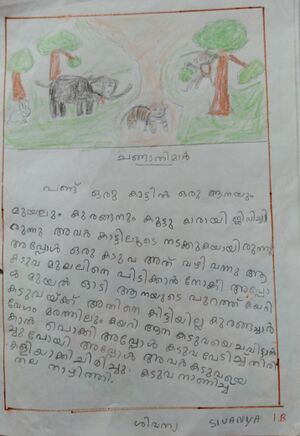 ചങ്ങാതിമാർ
പണ്ട് ഒരു കാട്ടിൽ ഒരു ആനയും
മുയലും കുരങ്ങനും കൂട്ടു കാരായി ജീവിച്ചി
രുന്നു അവർ കാട്ടിലൂടെ നടക്കുകയായിരുന്നു
അപ്പോൾ ഒരു കടുവ അത് വഴി വന്നു ആ
കടുവ മുയലിനെ പിടിക്കാൻ നോക്കി അപ്പോ
ൾ മുയൽ ഓടി ആനയുടെ പുറത്ത് കയറി
കടുവയ്ക്ക് അതിനെ കിട്ടിയില്ല കുരങ്ങച്ചാർ
വേഗം മരത്തിലും കയറി ആന കടുവയെ ചവിട്ടാൻ
കാൽ പൊക്കി അപ്പോൾ കടുവ പേടിച്ച്
പോയി അപ്പോൾ അവർ കടുവയെ
കളിയാക്കിചിരിച്ചു. കടുവ നാണിച്ചു
തല താഴ്ത്തി.
ശിവന്യ SIVANYA 1B